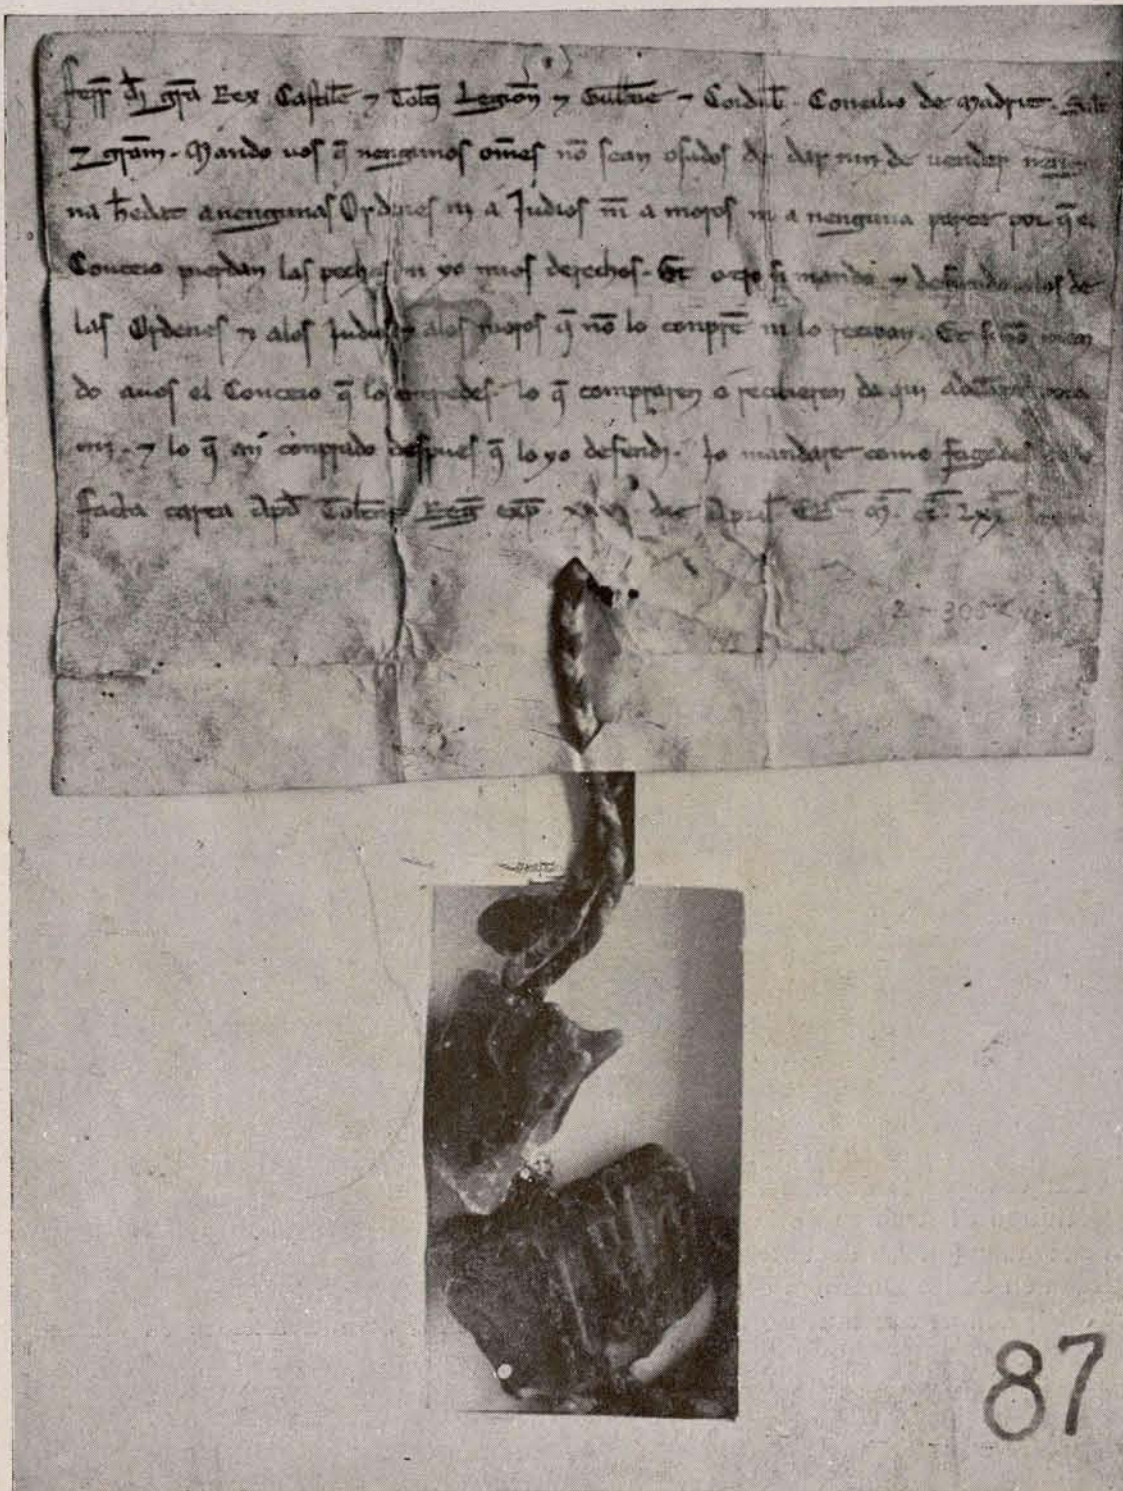 ferr̄ dī gr̄a Rex Castelle ⁊ Tolt̄ Legion̄ ⁊ Gall̄ie ⁊ Cordub̄. Concilio de Madrit. Salt̄
⁊ gr̄am. Mando uos q̄ nengunos om̄es nō sean osados de dar nin de uender nengu
na h̄edat a nengunas Ordenes ni a Judios nī a moros ni a nenguna parte por q̄ el
Conceio pierdan las pechas ni yo mios derechos. Et otro si mando ⁊ defiendo alos de
las Ordenes ⁊ alos Judios ⁊ alos moros q̄ nō lo conprē ni lo reciban. Et si nō man
do auos el Conceio q̄ los entredes lo q̄ compraren o recibieren da qui adelante pora
mi. ⁊ lo q̄ an conprado despues q̄ lo yo defendi. Jo mandare como fagades
facta carta Apd̄ Toletū Reḡ exp̄. xxvi die Aprīl E M. CC. Lxx
2-305
87